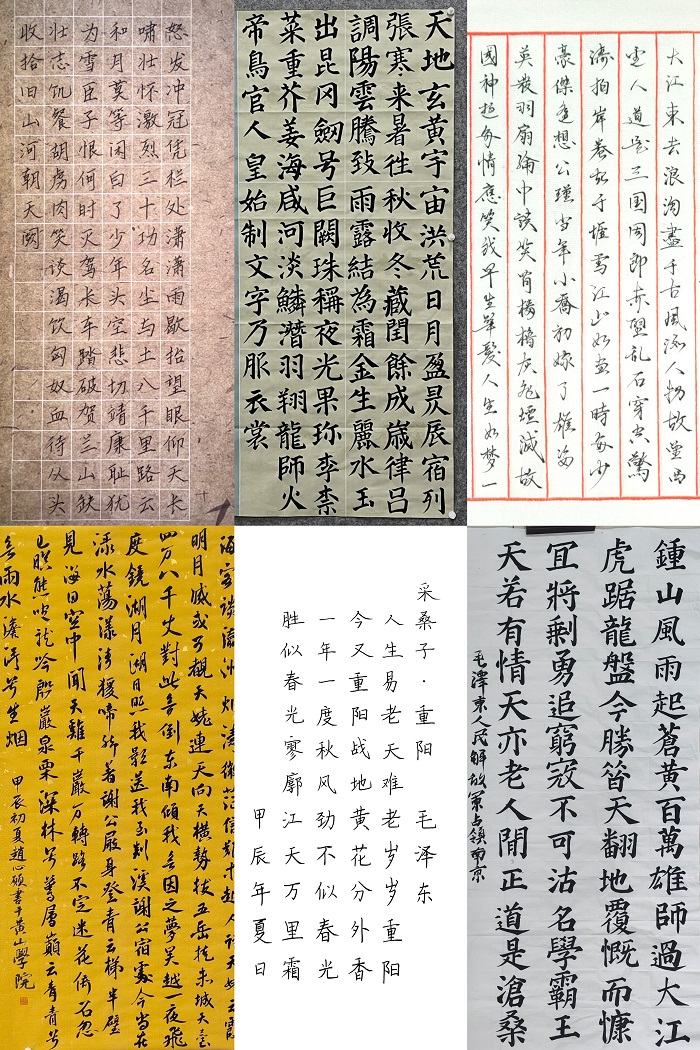 怒发冲冠凭栏处潇潇雨歇抬望眼仰天长
啸壮怀激烈三十功名尘与土八千里路云
和月莫等闲白了少年头空悲切靖康耻犹
为雪臣子恨何时灭驾长车踏破贺兰山缺
壮志饥餐胡虏肉笑谈渴饮匈奴血待从头
收拾旧山河朝天阙
天地玄黄宇宙洪荒日月盈昃辰宿列
張寒来暑徃秋收冬藏閏餘成嵗律吕
調陽雲騰致雨露結為霜金生麗水玉
出昆冈劒号巨闕珠稱夜光果珎李柰
菜重芥姜海咸河淡鱗潛羽翔龍師火
帝鳥官人皇始制文字乃服衣裳
大江東去浪淘盡千古風流人物故壘西
邊人道是三国周郎赤壁乱石穿空驚
濤拍岸卷起千堆雪江山如画一時多少
豪傑遥想公瑾当年小喬初嫁了雄姿
英發羽扇綸巾談笑间樯櫓灰飛煙滅故
國神遊多情應笑我早生華髮人生如梦一
海客談瀛洲烟濤微茫信難求越人語天姥云霞
明月滅或可覩天姥連天向天横勢拔五岳掩赤城天台
四万八千丈對此欲倒东南傾我欲因之夢吴越一夜飛
度鏡湖月湖月照我影送我至剡溪謝公宿處今尚在
渌水蕩漾清猿啼脚著謝公屐身登青云梯半壁
見海日空中聞天雞千巖万轉路不定迷花倚石忽
已暝熊咆龙吟殷巖泉栗深林兮驚層巔云青青兮
欲雨水澹澹兮生烟
甲辰初夏趙心願書于黄山學院
采桑子·重阳 毛泽东
人生易老天难老岁岁重阳
今又重阳战地黄花分外香
一年一度秋风劲不似春光
胜似春光寥廓江天万里霜
甲辰年夏日
鍾山風雨起蒼黄百萬雄師過大江
虎踞龍盤今勝昔天翻地覆慨而慷
宜將剩勇追窮寇不可沽名學霸王
天若有情天亦老人間正道是滄桑
毛澤東人民解放軍占領南京